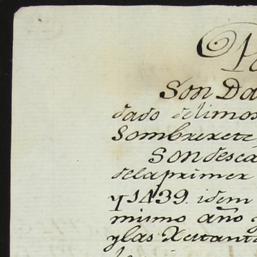 Son Da
dado de limos
Sombrerete
Son desca
de la primer
Y 1439. idem
mismo año
y las Xetant